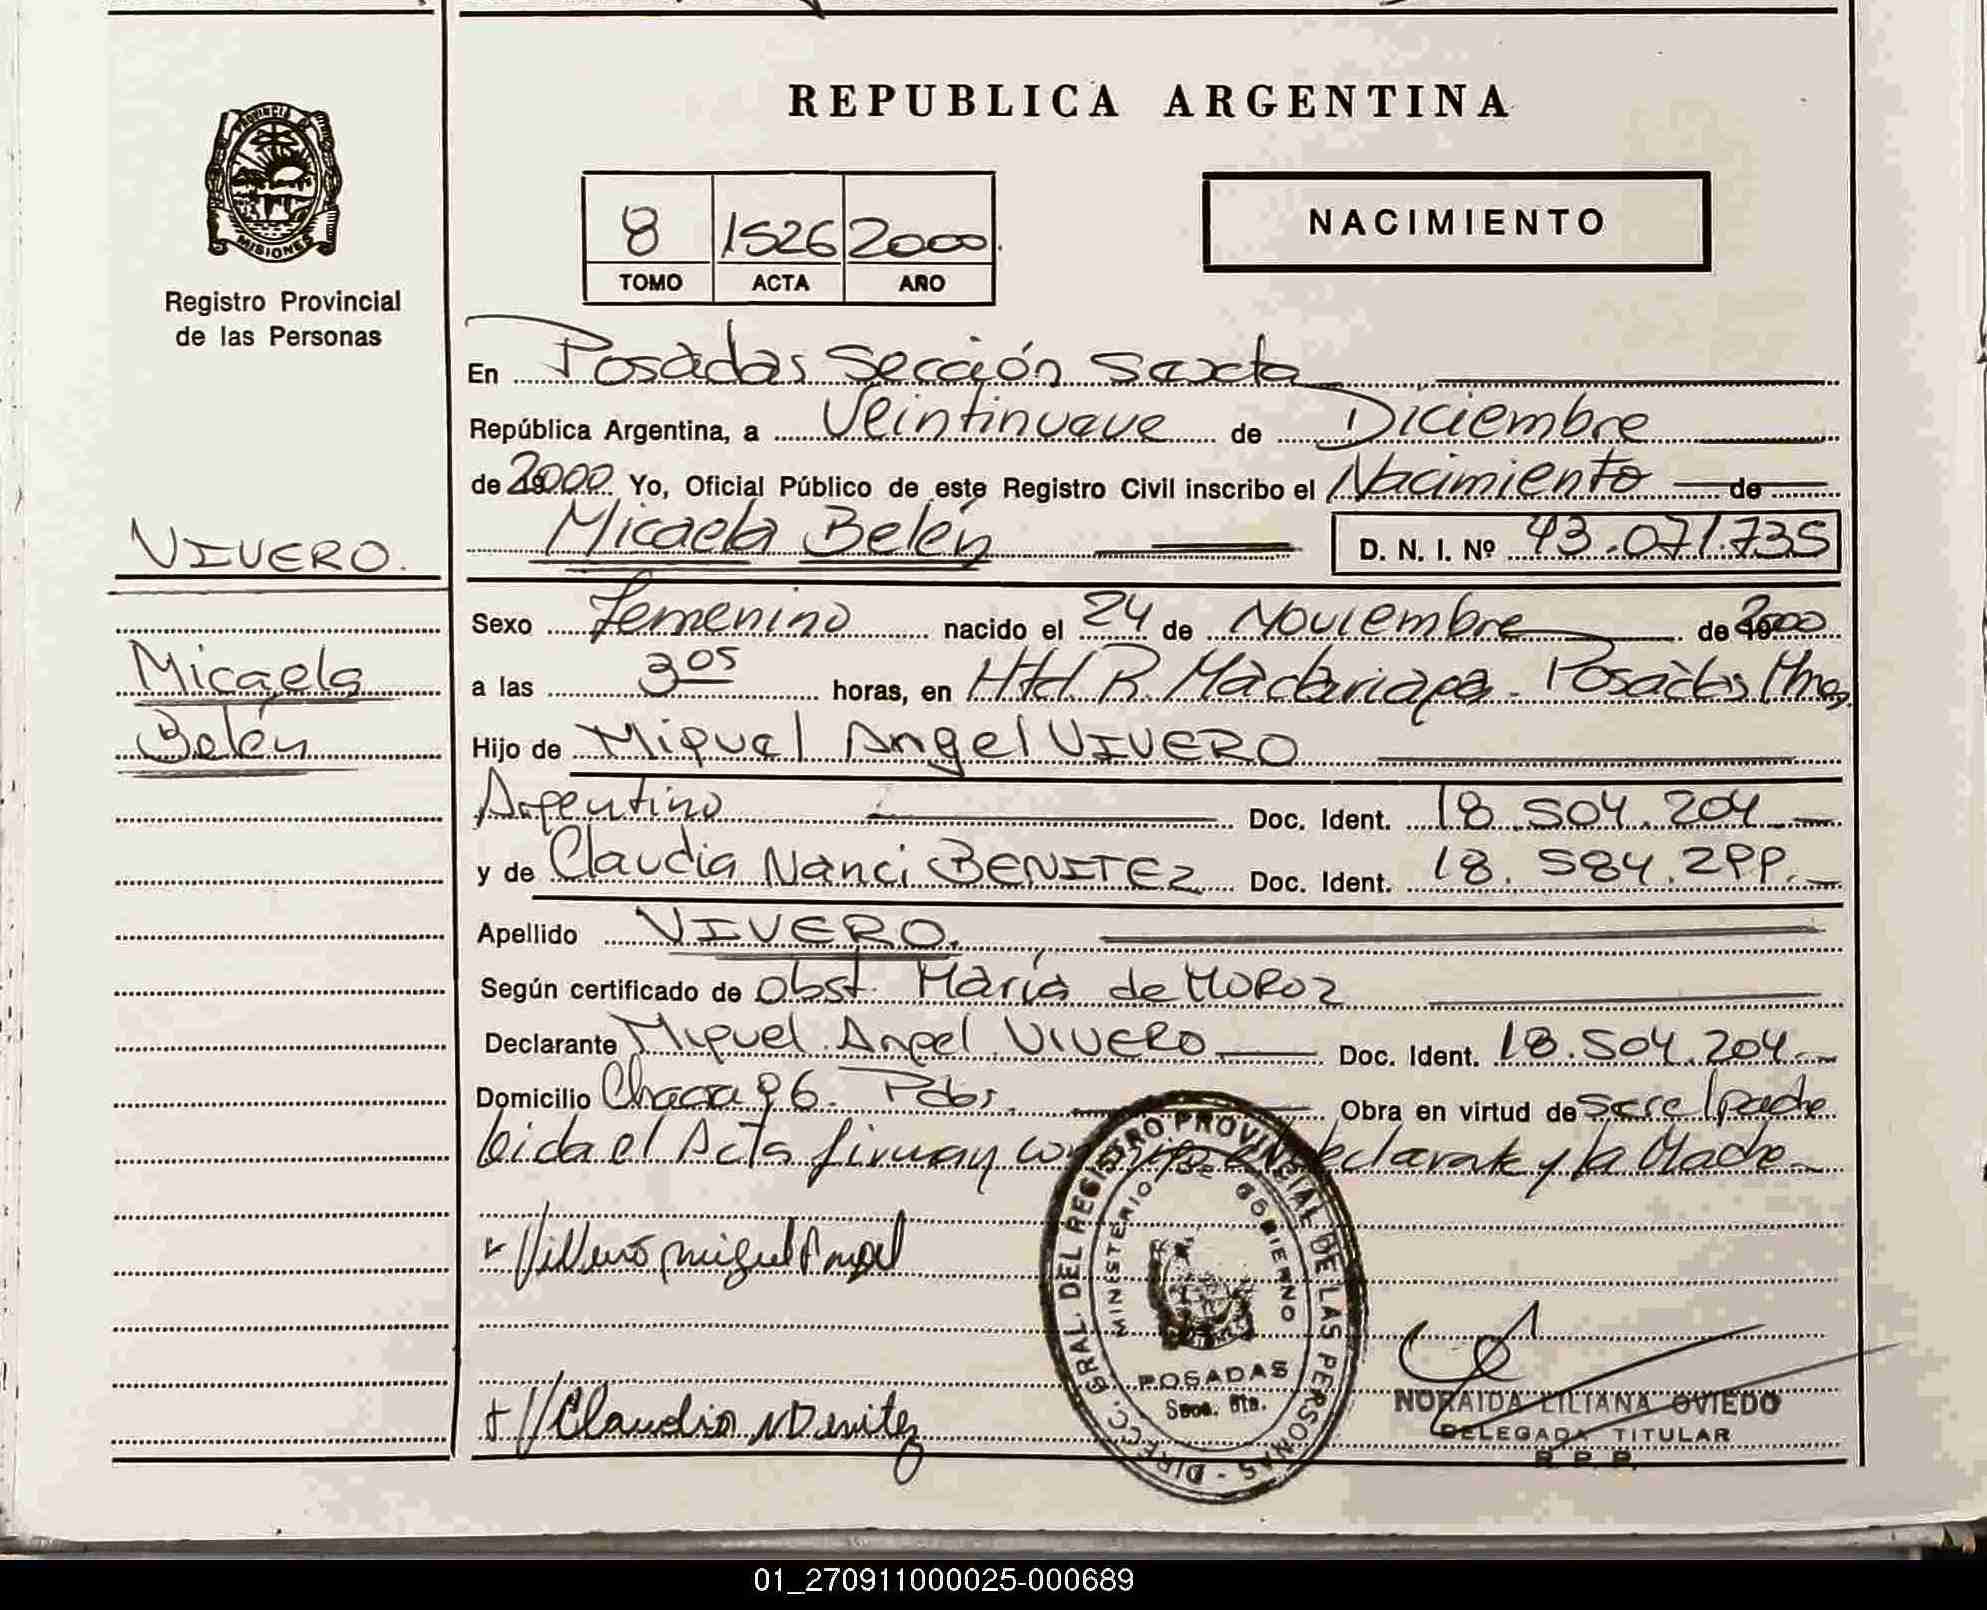 REPUBLICA ARGENTINA
PROVINCIA DE
MISIONES
Registro Provincial
de las Personas
8 1526 2000
TOMO ACTA AÑO
NACIMIENTO
En Posadas Sección Sexta
República Argentina, a Veintinueve de Diciembre
de 2000 Yo, Oficial Público de este Registro Civil inscribo el Nacimiento de
VIVERO.
Micaela Belén D. N. I. Nº 43.071.735
Sexo Femenino nacido el 24 de Noviembre de 2000
Micaela
a las 3 05 horas, en Htal R. Madariaga - Posadas Mnes
Belén
Hijo de Miguel Angel VIVERO
Argentino Doc. Ident. 18.504.204
y de Claudia Nanci BENITEZ Doc. Ident. 18.584.299.
Apellido VIVERO.
Según certificado de Obst. María de MOROZ
Declarante Miguel Angel VIVERO Doc. Ident. 18.504.204
Domicilio Chacra 96. Pdas. Obra en virtud de ser el padre
leida el Acta firman conmigo el declarante y la Madre
Villero miguel Angel
Claudia N Benitez
DIRECC. GRAL. DEL REGISTRO PROVINCIAL DE LAS PERSONAS
MINISTERIO DE GOBIERNO
POSADAS
Secc. 6ta.
NORAIDA LILIANA OVIEDO
DELEGADA TITULAR
R. P. P.
01_270911000025-000689